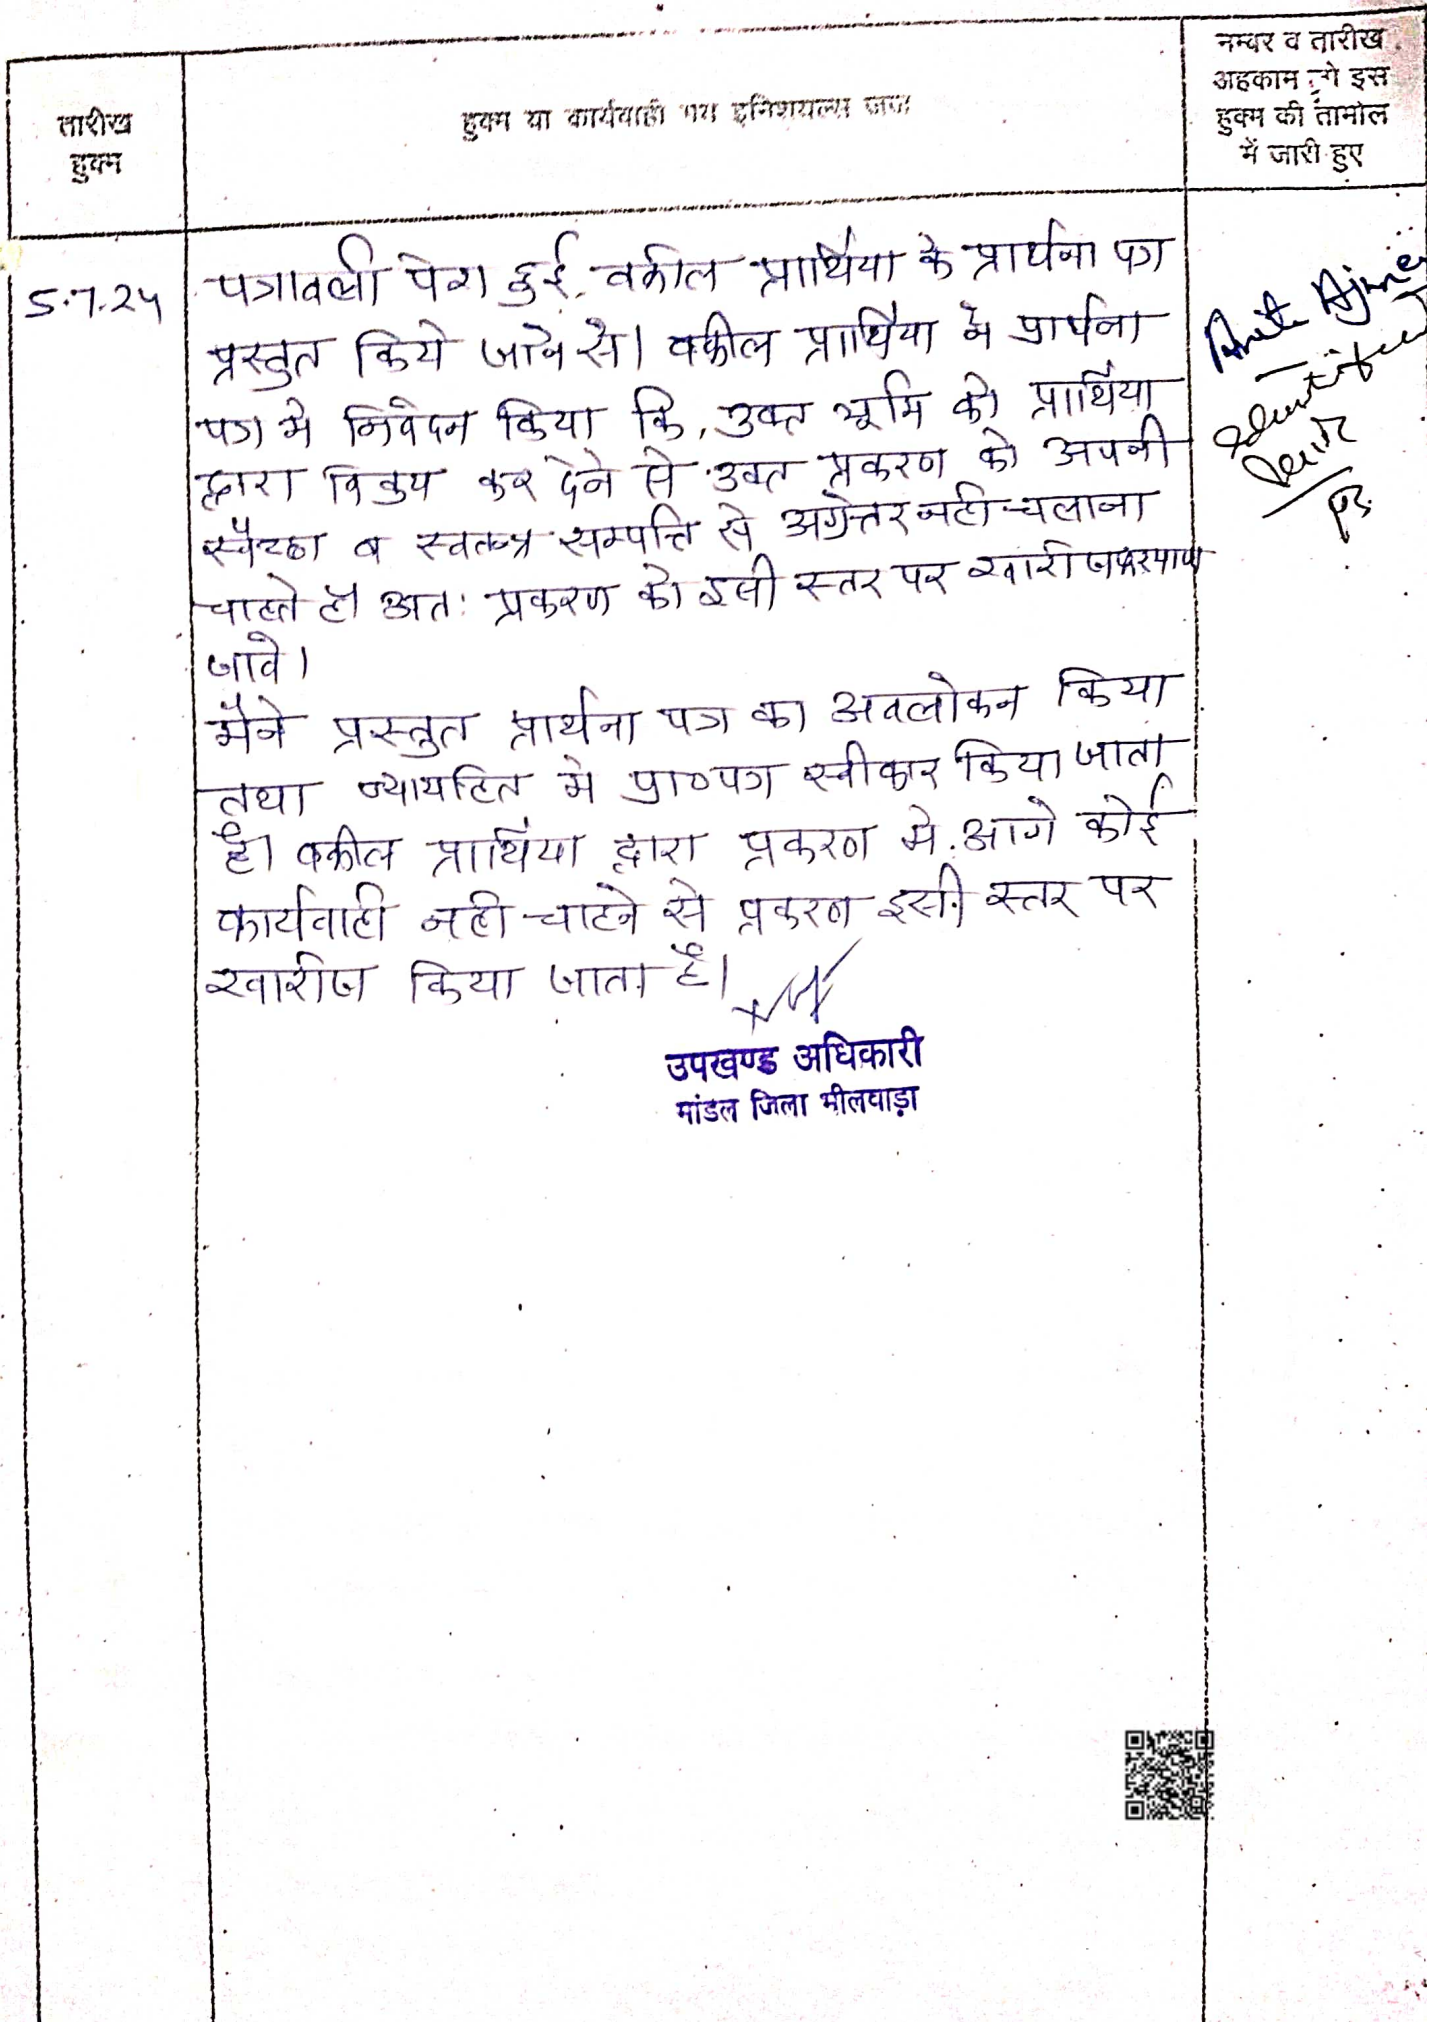 तारीख
हुक्म
हुक्म या कार्यवाही मय इनिशियल्स जज
नम्बर व तारीख
अहकाम जो इस
हुक्म की तामील
में जारी हुए
5.7.24
पत्रावली पेश हुई, वकील प्रार्थिया के प्रार्थना पत्र
प्रस्तुत किये जाने से। वकील प्रार्थिया ने प्रार्थना
पत्र मे निवेदन किया कि, उक्त भूमि को प्रार्थिया
द्वारा विक्रय कर देने से उक्त प्रकरण को अपनी
स्वैच्छा व स्वतन्त्र सम्पत्ति से अग्रेत्तर नही चलाना
चाहते है। अतः प्रकरण को इसी स्तर पर खारीज फरमाया
जावे।
मैने प्रस्तुत प्रार्थना पत्र का अवलोकन किया
तथा न्यायहित मे प्रा०पत्र स्वीकार किया जाता
है। वकील प्रार्थिया द्वारा प्रकरण मे आगे कोई
कार्यवाही नही चाहने से प्रकरण इसी स्तर पर
खारीज किया जाता है।
उपखण्ड अधिकारी
मांडल जिला भीलवाड़ा